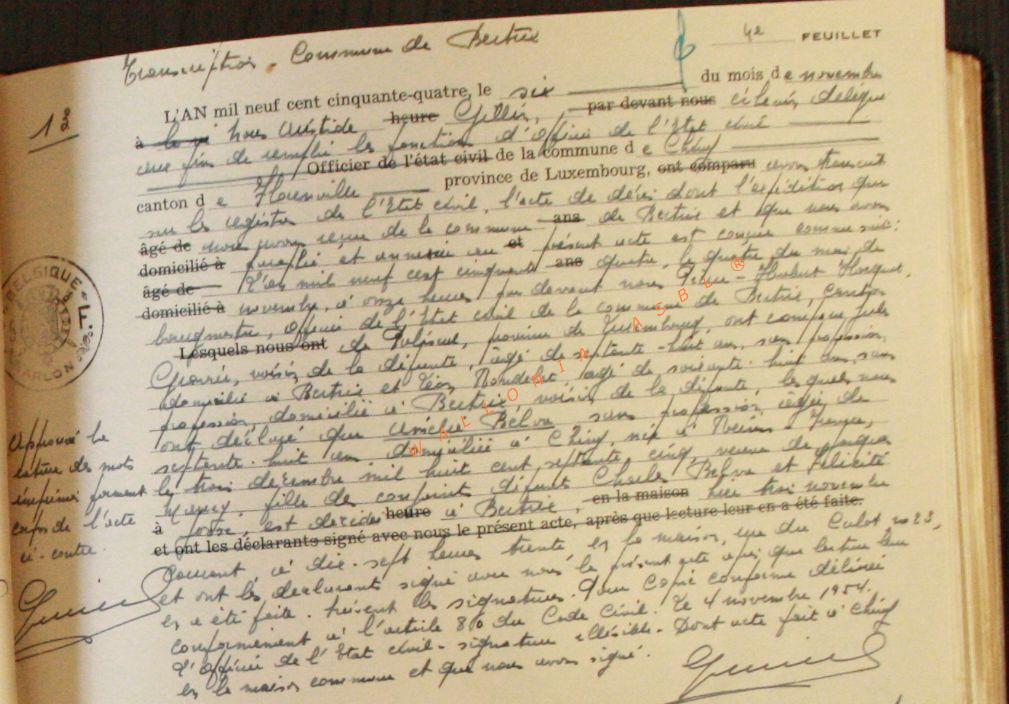 4e FEUILLET
Transcription. Commune de Bertrix
12
L'AN mil neuf cent cinquante-quatre, le six du mois de novembre
à heure par devant nous
nous Aristide Gillin, échevin délégué
aux fins de remplir les fonctions d'Officier de l'Etat civil
Officier de l'état civil de la commune de Chiny
canton de Florenville province de Luxembourg, ont comparu avons transcrit
sur les registres de l'Etat civil, l'acte de décès dont l'expédition que
âgé de ans nous avons reçue de la commune de Bertrix et que nous avons
domicilié à et paraphé et annexée au présent acte est conçue comme suit:
âgé de ans L'an mil neuf cent cinquante quatre, le quatre du mois de
domicilié à novembre, à onze heures par devant nous Hubert
bourgmestre, officier de l'Etat civil de la commune de Bertrix, canton
Lesquels nous ont de Paliseul, province de Luxembourg, ont comparu Jules
voisin de la défunte, âgé de septante-huit ans, sans profession,
domicilié à Bertrix et Léon âgé de soixante-huit ans, sans
profession, domicilié à Bertrix voisin de la défunte, lesquels nous
ont déclaré que Belva sans profession âgée de
septante-huit ans domiciliée à Chiny, née à France,
le trois décembre mil huit cent septante cinq, veuve de
fille de conjoints défunts Charles Belva et Félicité
à heure en la maison
est décédée à Bertrix, hier trois novembre
et ont les déclarants signé avec nous le présent acte, après que lecture leur en a été faite.
courant à dix-sept heures trente en la maison, rue du Culot no 23,
et ont les déclarants signé avec nous le présent acte après que lecture leur
en a été faite. Suivent les signatures. Pour copie conforme délivrée
conformément à l'article 80 du Code Civil. Le 4 novembre 1954.
L'officier de l'Etat civil - signature illisible. Dont acte fait à Chiny
en la maison commune et que nous avons signé.
Approuvé la
rature des mots
imprimés formant
corps de l'acte
ci-contre
BELGIQUE
ARLON
WALLONIA ASBL ®